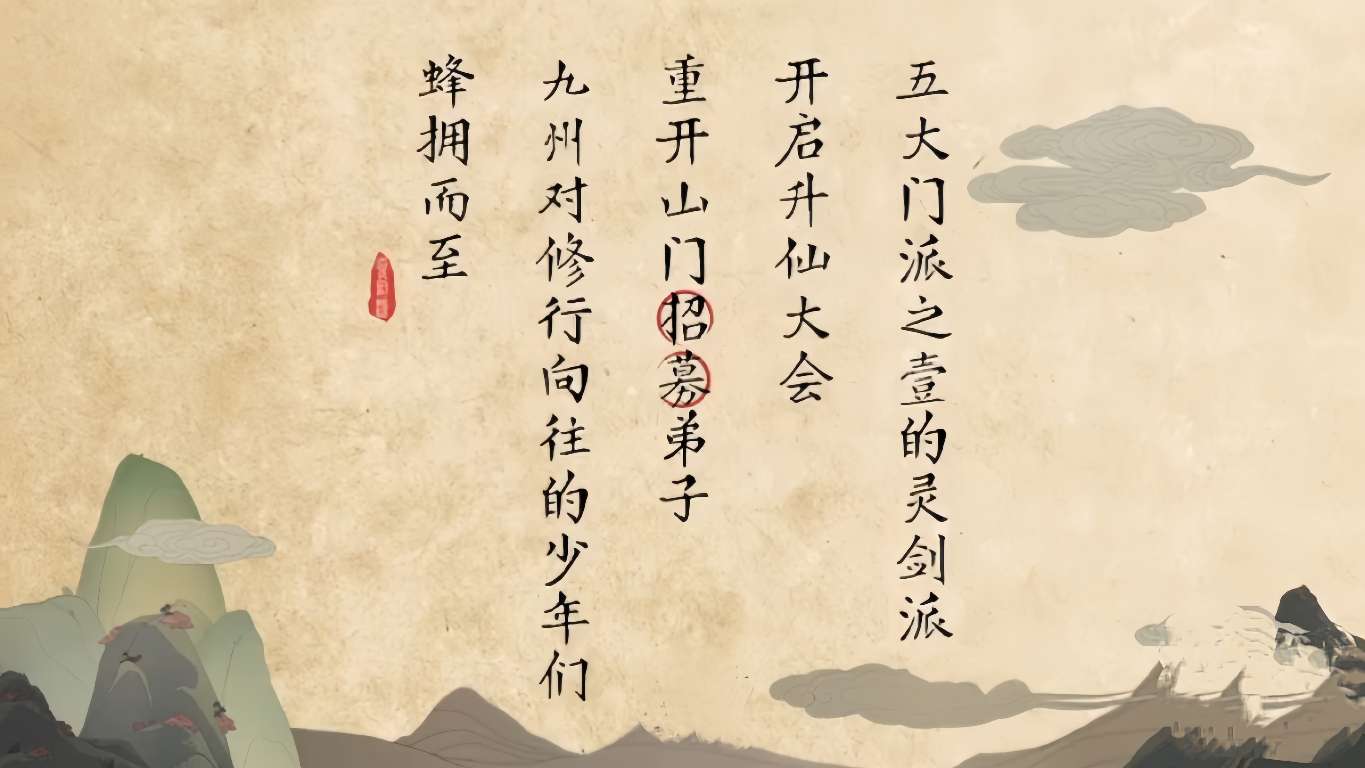 五大门派之壹的灵剑派
开启升仙大会
重开山门招募弟子
九州对修行向往的少年们
蜂拥而至